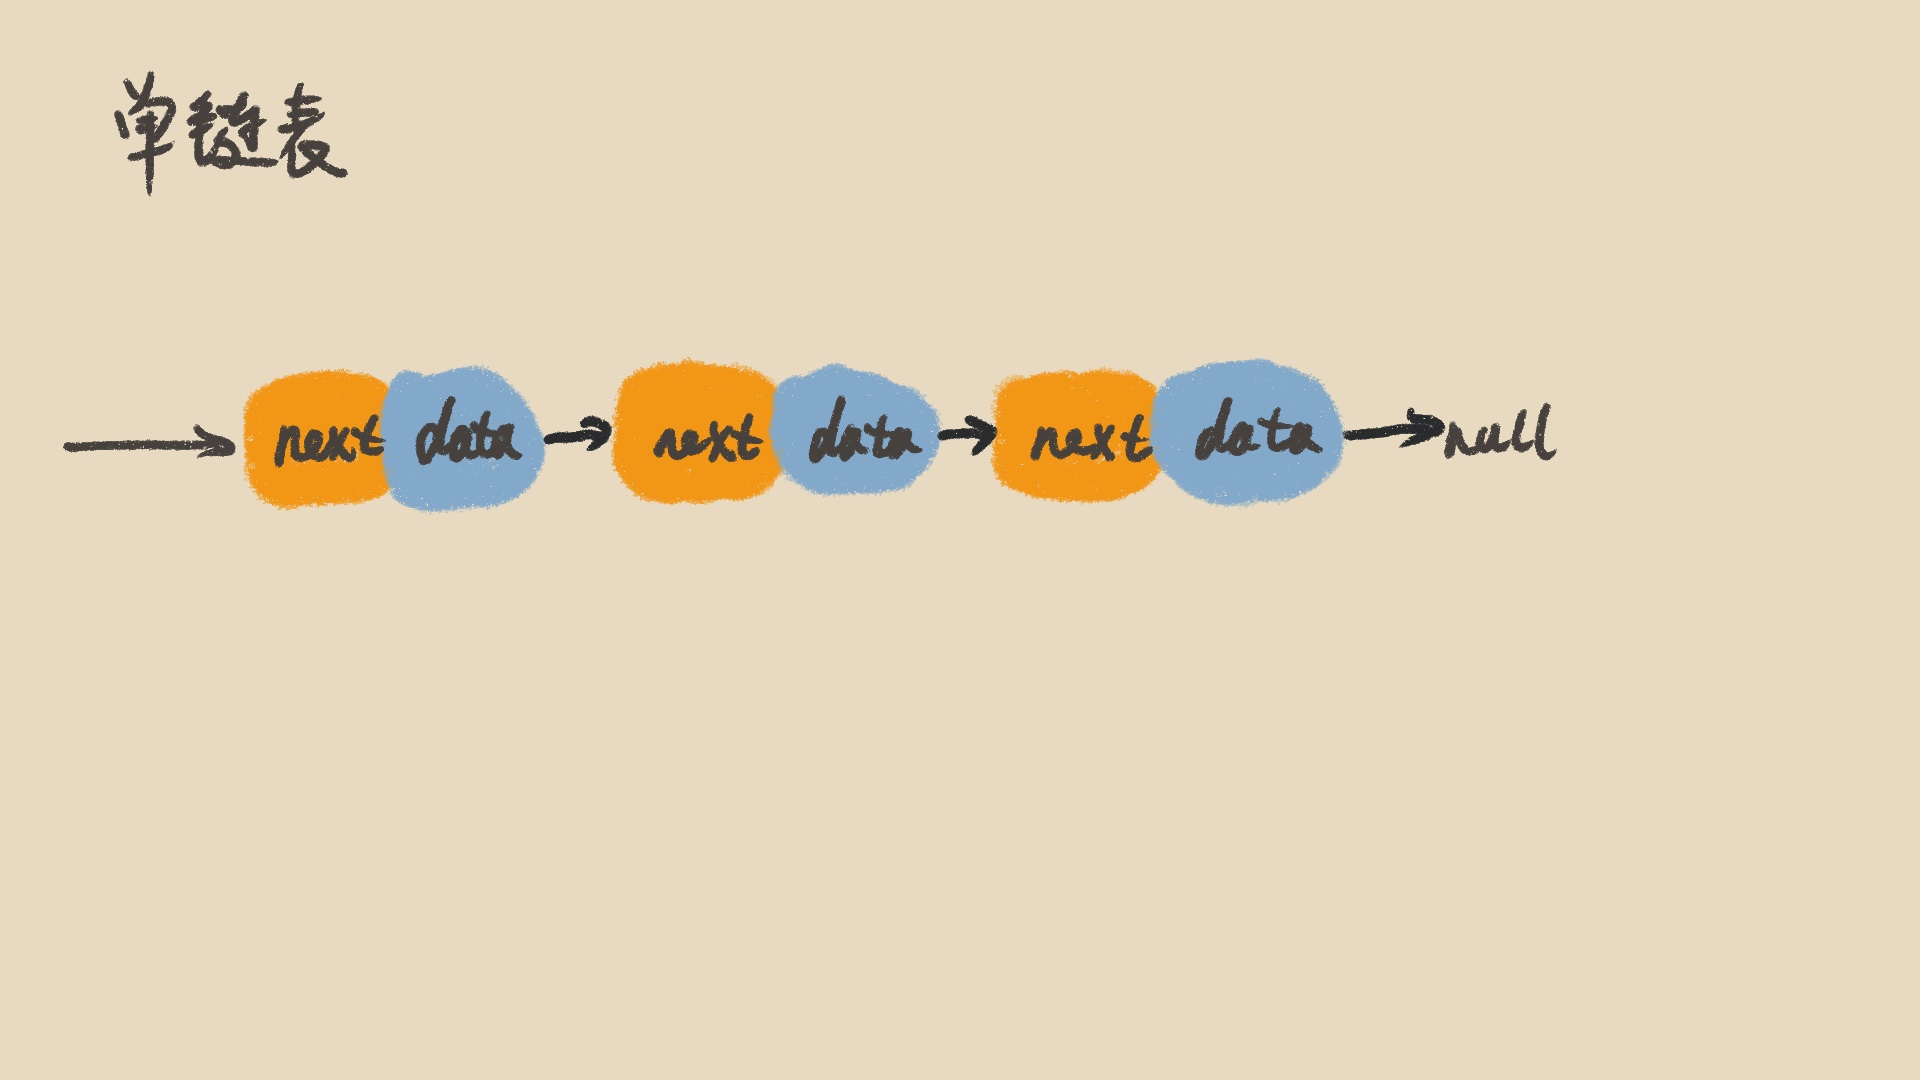 单链表
next data next data next data null